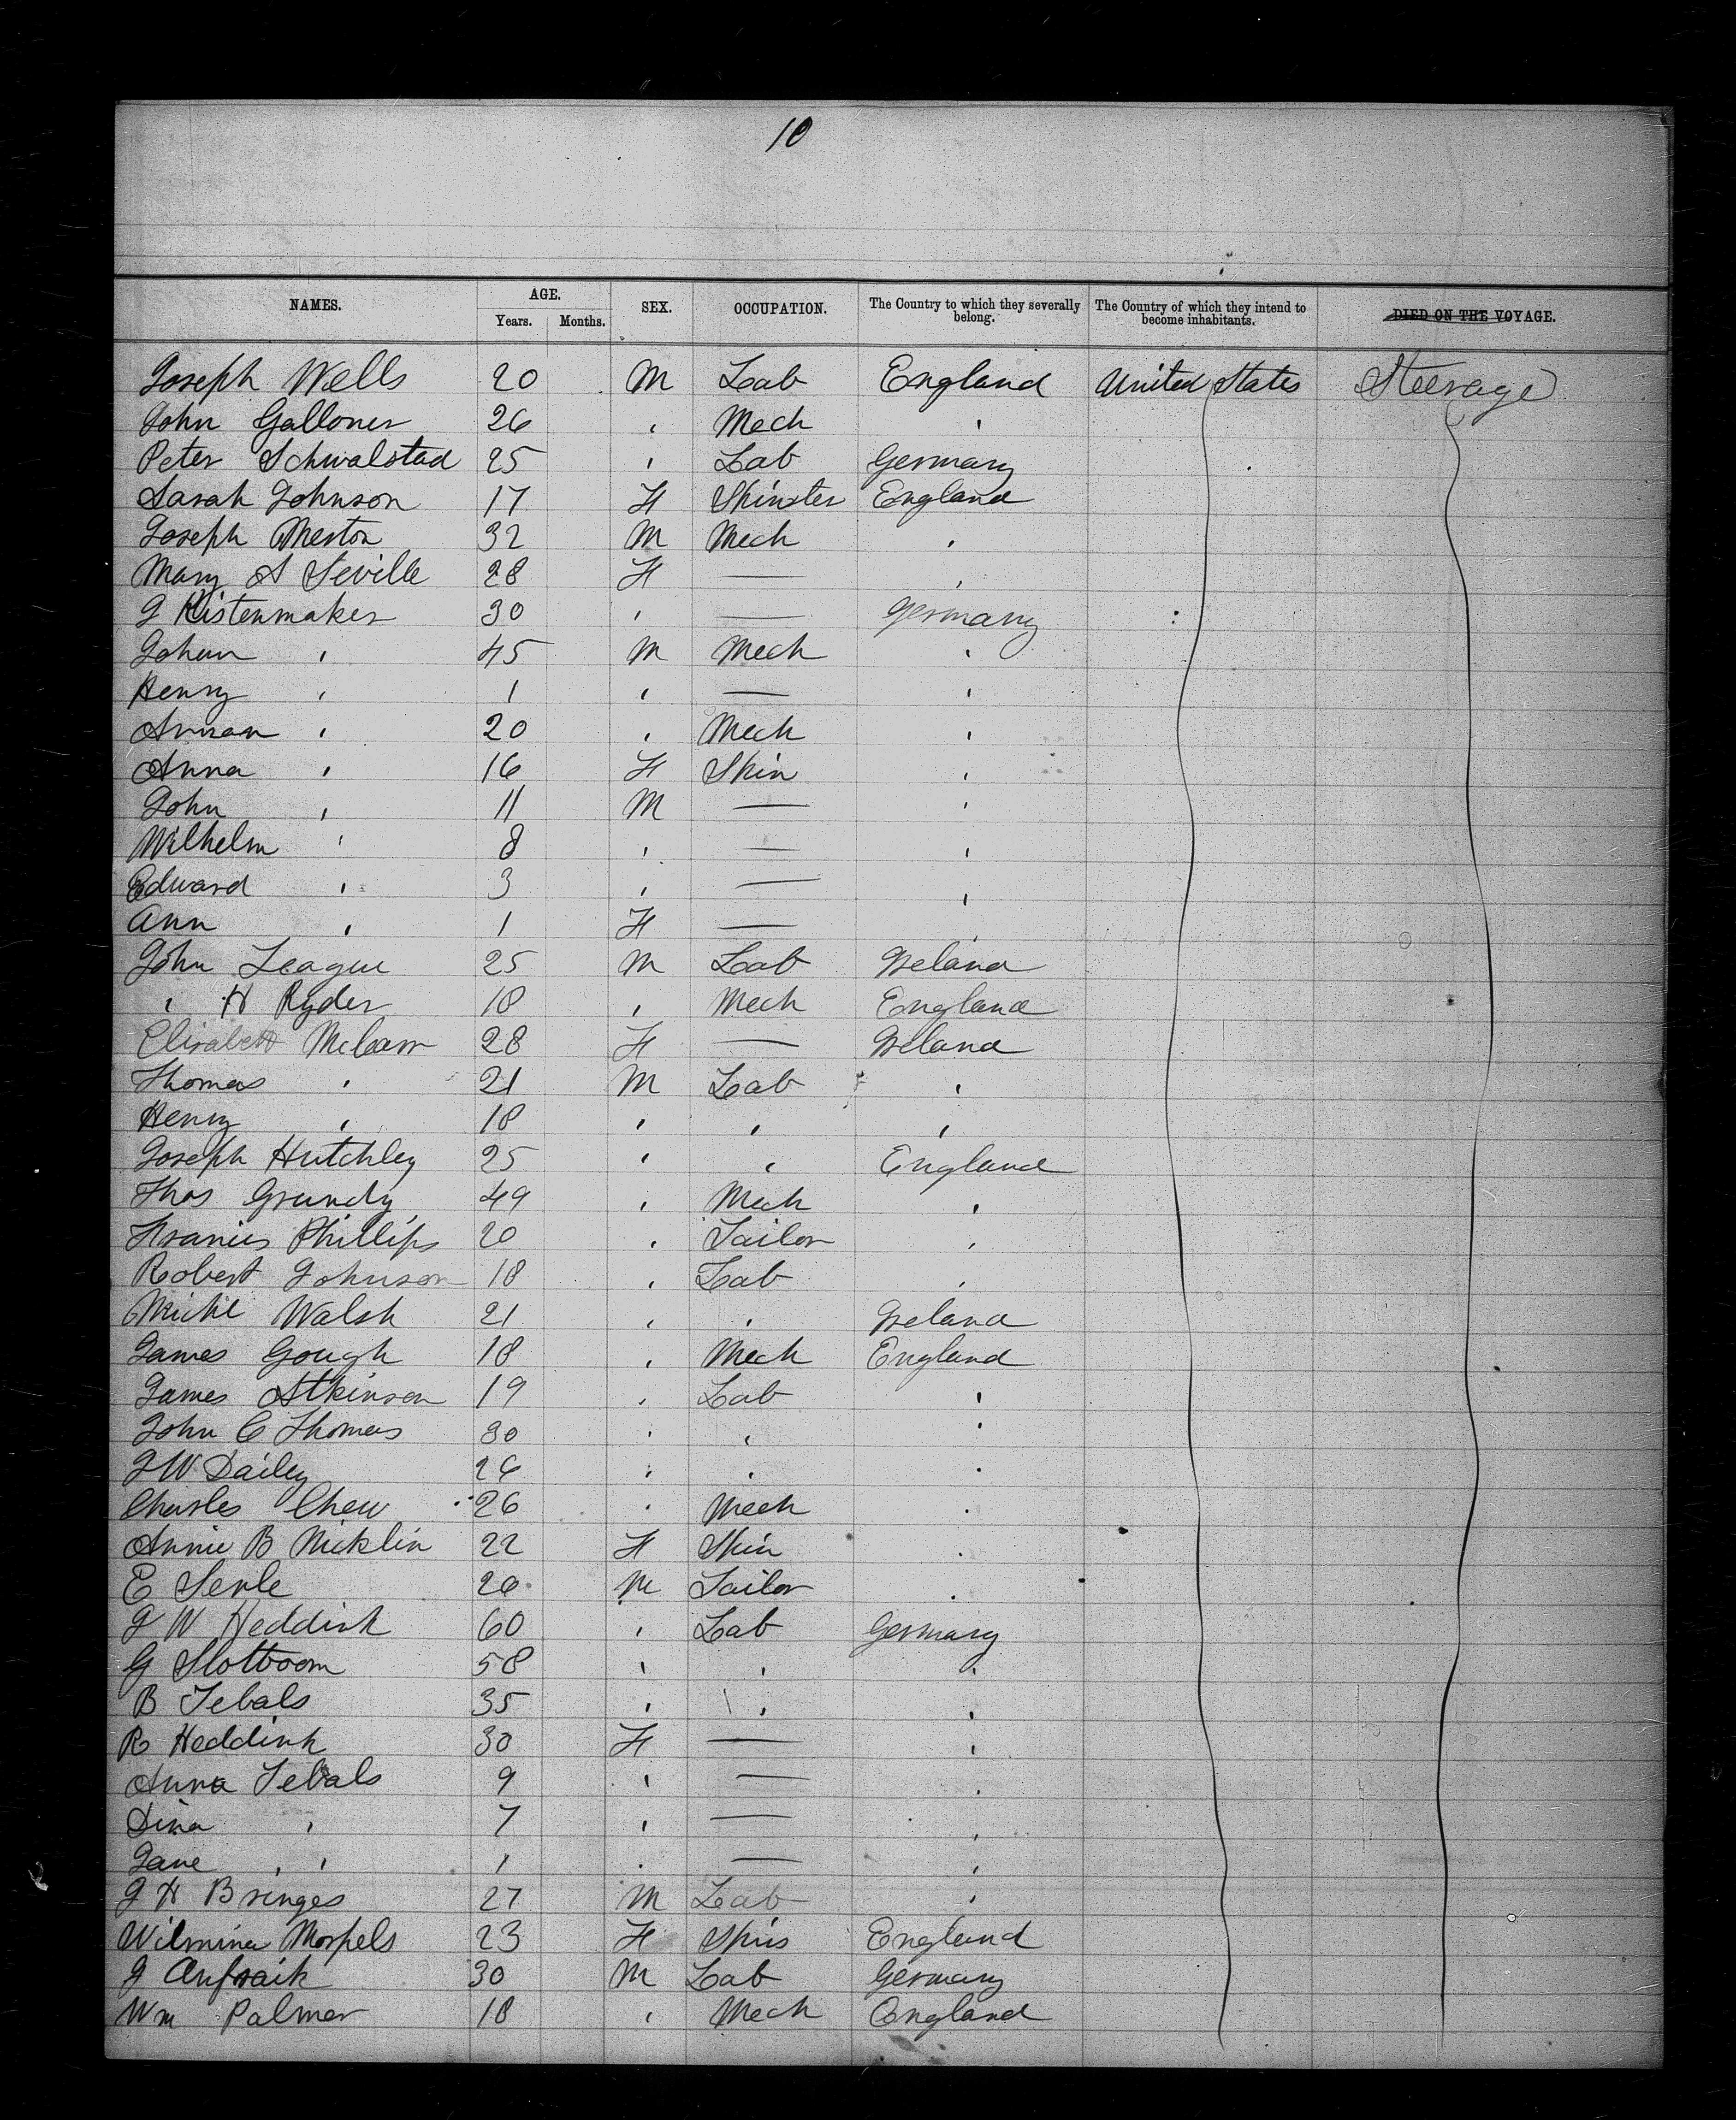 10
NAMES. AGE. Years. Months. SEX. OCCUPATION. The Country to which they severally belong. The Country of which they intend to become inhabitants. DIED ON THE VOYAGE.
Joseph Wells 20 M Lab England United States Steerage
John Galloner 26 " Mech "
Peter Schwalstad 25 " Lab Germany
Sarah Johnson 17 F Spinster England
Joseph 32 M Mech "
Mary A Seville 28 F — "
J Kistenmaker 30 " — Germany
Johan " 45 M Mech "
Henry " 1 " — "
" 20 " Mech "
Anna " 16 F Spin "
John " 11 M — "
Wilhelm " 8 " — "
Edward " 3 " — "
Ann " 1 F — "
John League 25 M Lab Ireland
" H Ryder 18 " Mech England
Elizabeth McCarr 28 F — Ireland
Thomas " 21 M Lab "
Henry " 18 " " "
Joseph Hutchley 25 " " England
Thos Grundy 49 " Mech "
Francis Phillips 20 " Tailor "
Robert Johnson 18 " Lab "
Michl Walsh 21 " " Ireland
James Gough 18 " Mech England
James Atkinson 19 " Lab "
John C Thomas 30 " " "
J W Dailey 26 " " "
Charles Chew 26 " Mech "
Annie B Nicklin 22 F Spin "
E Serle 26 M Tailor "
J W Heddink 60 " Lab Germany
G Slotboom 58 " " "
B Tebals 35 " " "
R Heddink 30 F — "
Anna Tebals 9 " — "
Dina " 7 " — "
Jane " " 1 " — "
J H Bringes 27 M Lab "
Wilmina Morpels 23 F Spins England
J 30 M Lab Germany
Wm Palmer 18 " Mech England